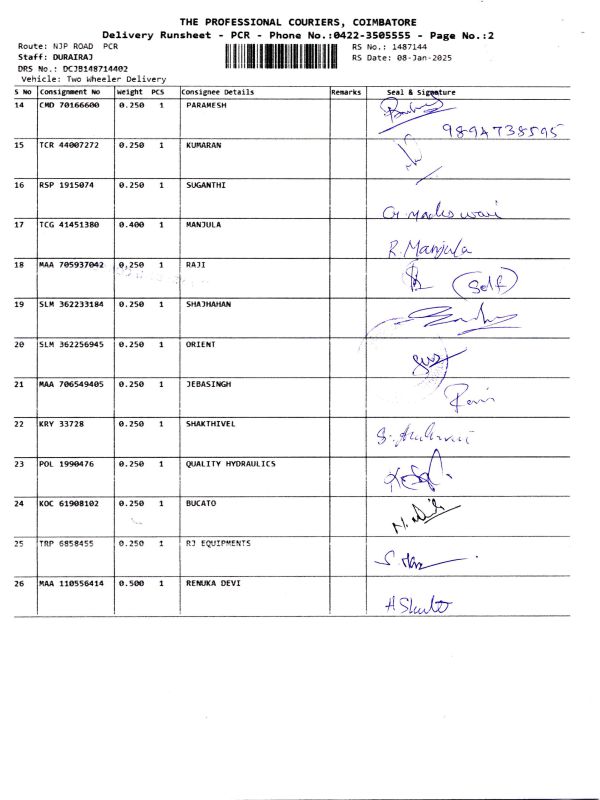 THE PROFESSIONAL COURIERS, COIMBATORE
Delivery Runsheet - PCR - Phone No.:0422-3505555 - Page No.:2
Route: NJP ROAD PCR RS No.: 1487144
Staff: DURAIRAJ RS Date: 08-Jan-2025
DRS No.: DCJB148714402
Vehicle: Two Wheeler Delivery
S No Consignment No Weight PCS Consignee Details Remarks Seal & Signature
14 CMD 70166600 0.250 1 PARAMESH
9894738595
15 TCR 44007272 0.250 1 KUMARAN
16 RSP 1915074 0.250 1 SUGANTHI
17 TCG 41451380 0.400 1 MANJULA
R. Manjula
18 MAA 705937042 0.250 1 RAJI
(Self)
19 SLM 362233184 0.250 1 SHAJHAHAN
20 SLM 362256945 0.250 1 ORIENT
21 MAA 706549405 0.250 1 JEBASINGH
22 KRY 33728 0.250 1 SHAKTHIVEL
23 POL 1990476 0.250 1 QUALITY HYDRAULICS
24 KOC 61908102 0.250 1 BUCATO
25 TRP 6858455 0.250 1 RJ EQUIPMENTS
26 MAA 110556414 0.500 1 RENUKA DEVI